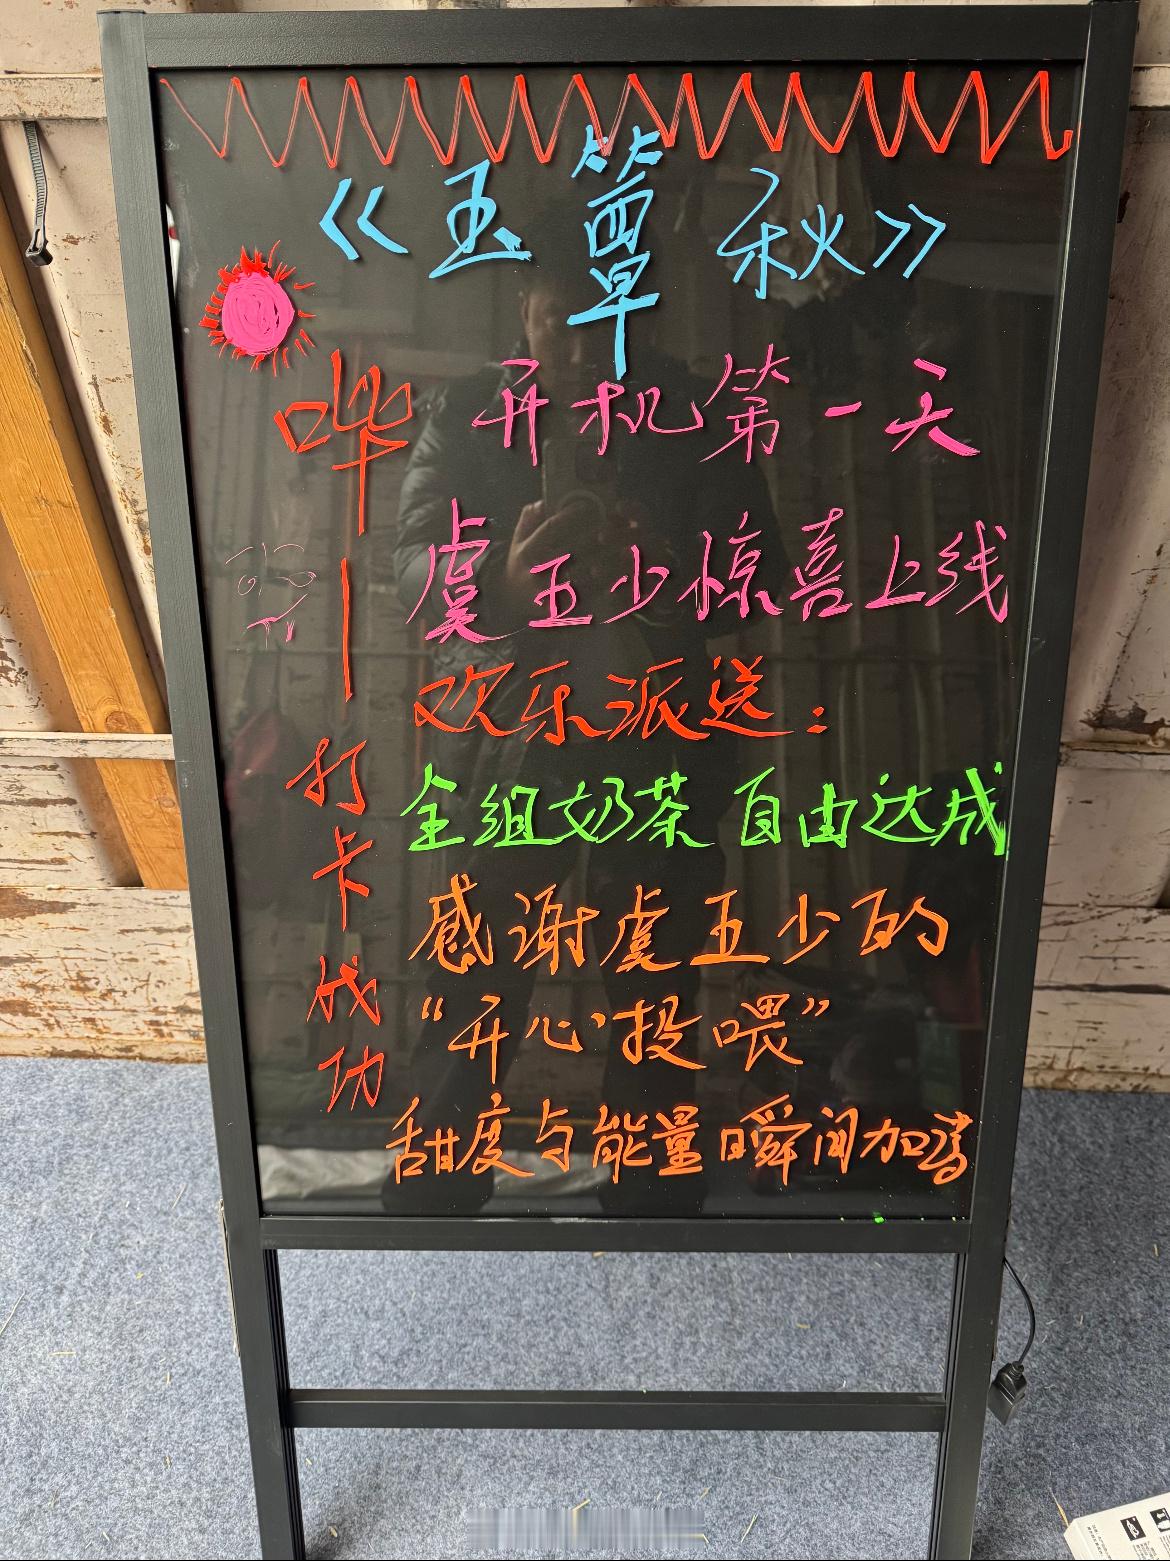 《玉簟秋》
开机第一天
虞五少惊喜上线
欢乐派送：
全组奶茶 自由达成
感谢虞五少的
“开心投喂”
甜度与能量瞬间加满
哗——打卡成功